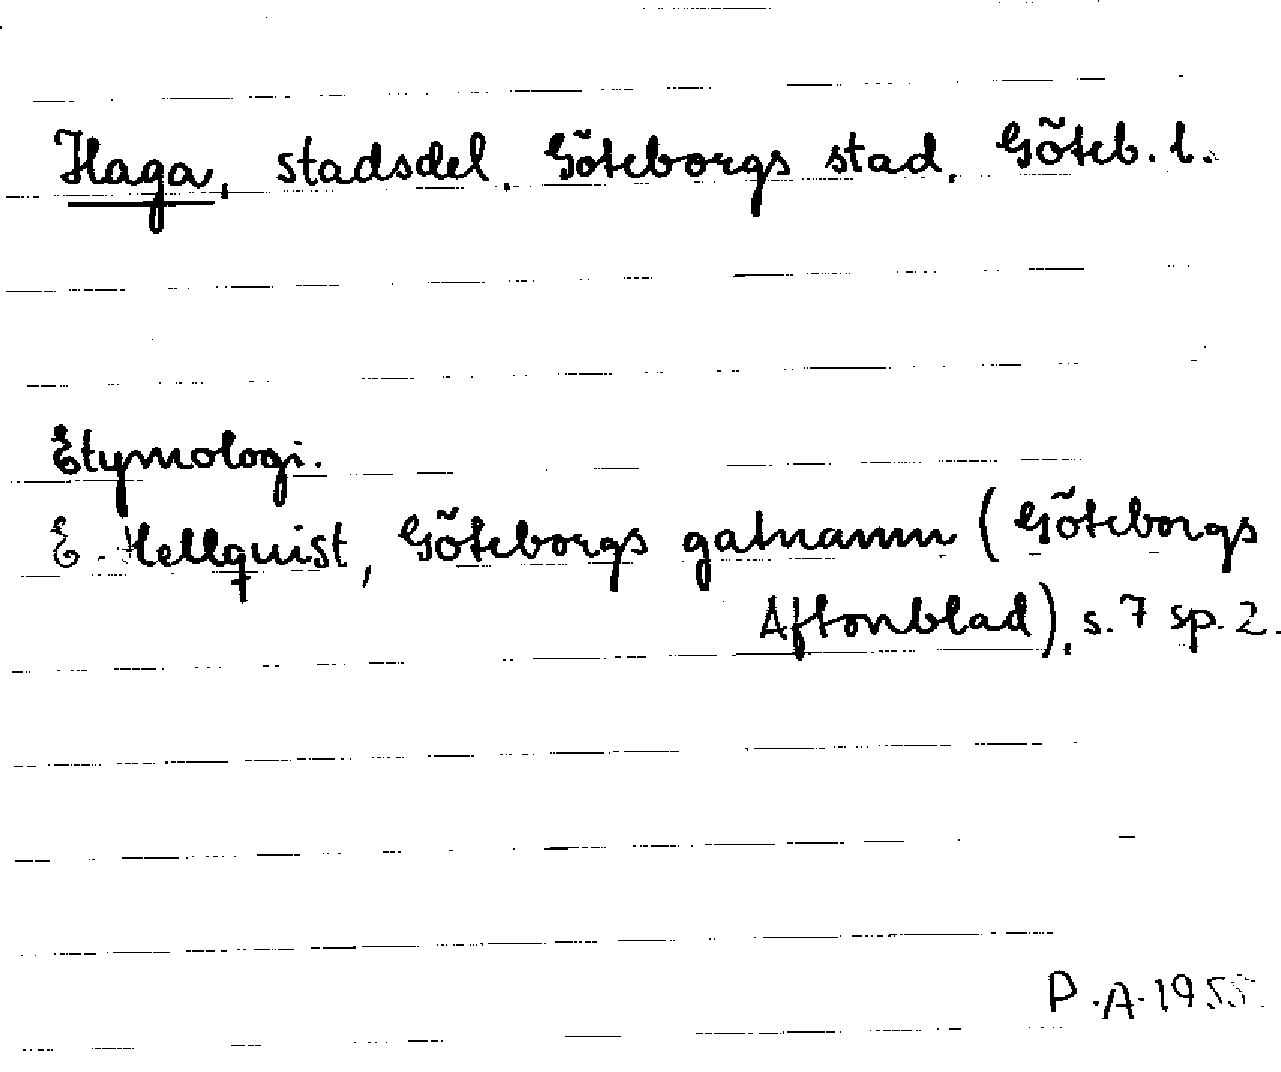 Haga, stadsdel, Göteborgs stad, Göteb. l.
Etymologi.
E. Hellquist, Göteborgs gatnamn (Göteborgs
Aftonblad), s. 7 sp. 2.
P.A. 1955